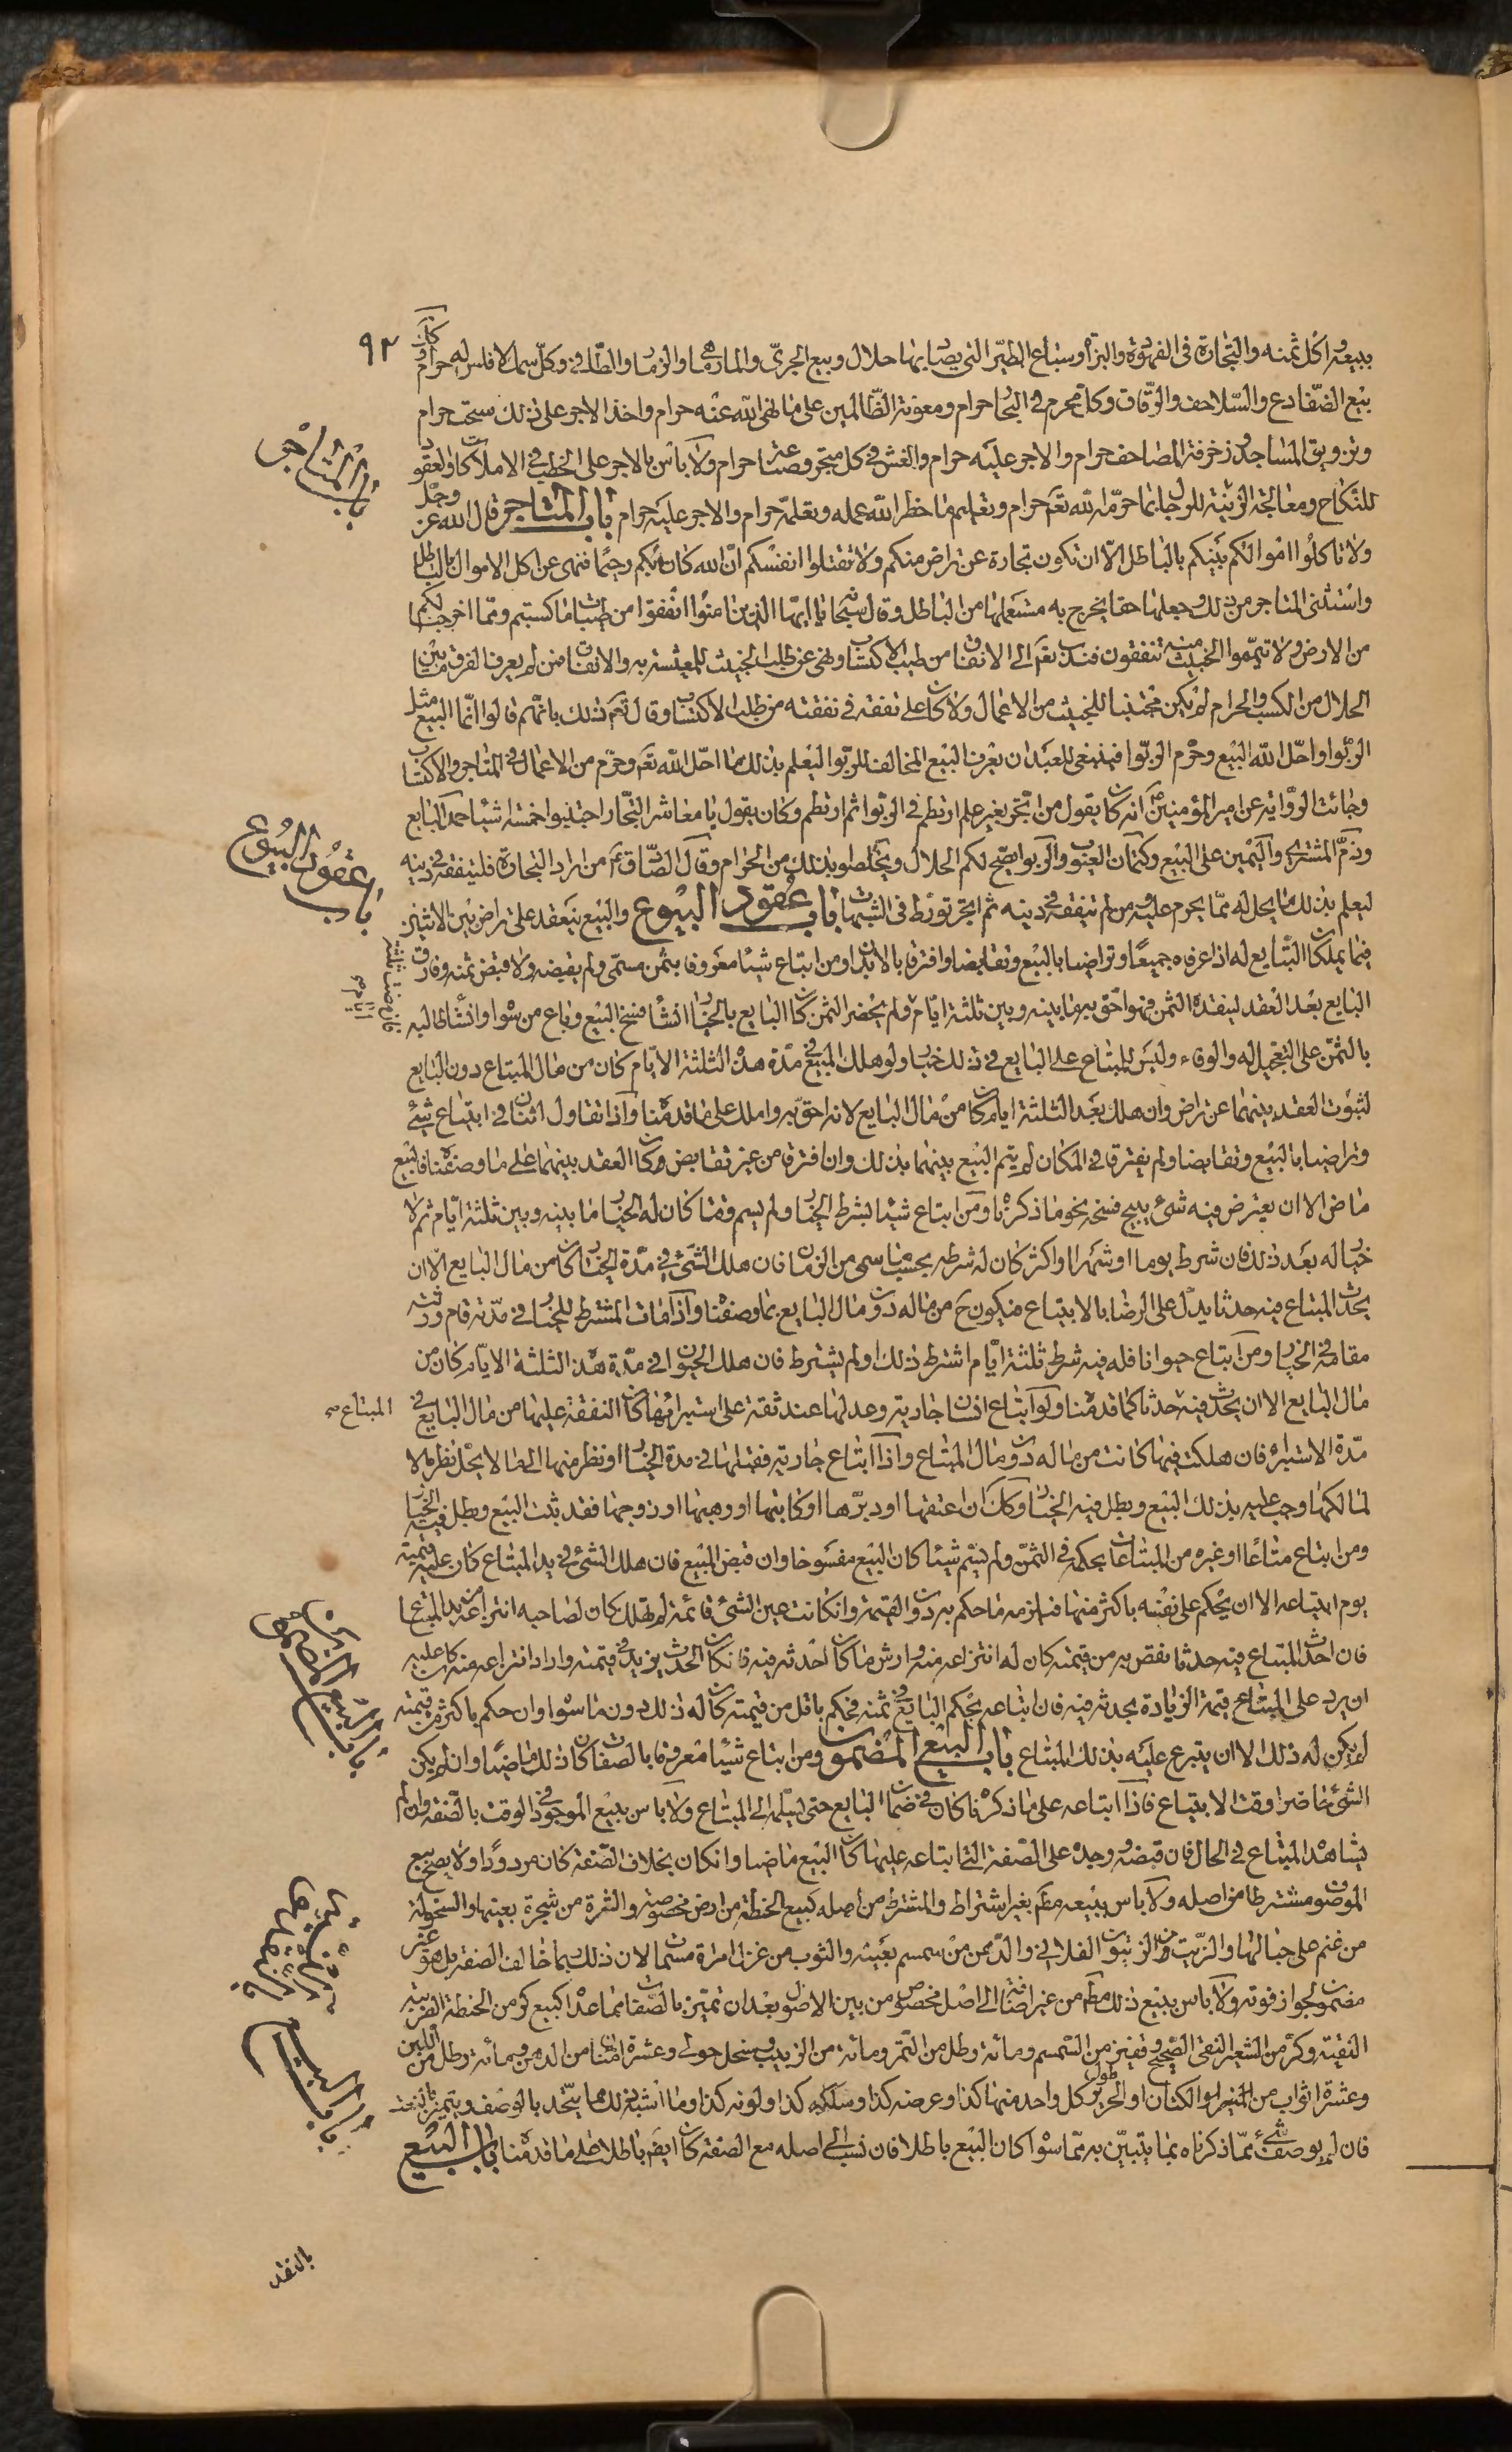 ٩٢
ببيعه واكل ثمنه والتجارة فى الفهودة والبزاة وسباع الطير التى يصاد بها حلال وبيع الجرى والمارماهى والزمار والطافى وكل سمك لا فلس له حرام وكك
بيع الضفادع والسلاحف والرقاق وكل محرم فى البحار حرام ومعونة الظالمين على ما نهى الله عنه حرام واخذ الاجر على ذلك سحت حرام
وتزويق المساجد وزخرفة المصاحف حرام والاجر عليه حرام والغش فى كل متجر وصناعة حرام ولا باس بالاجر على الخطب فى الاملاكات والعقود
للنكاح ومعالجة الزينة للرجال بما حرمه الله تعم حرام وتعليم ما حظر الله عمله وتعلمه حرام والاجر عليه حرام باب المتاجر قال الله عز وجل
ولا تاكلوا اموالكم بينكم بالباطل الا ان تكون تجارة عن تراض منكم ولا تقتلوا انفسكم ان الله كان بكم رحيما فنهى عن اكل الاموال بالباطل
واستثنى المتاجر من ذلك وجعلها حقا يخرج به مستعملها من الباطل وقال سبحانه يا ايها الذين امنوا انفقوا من طيبات ما كسبتم ومما اخرجنا لكم
من الارض ولا تيمموا الخبيث منه تنفقون فندب تعم الى الانفاق من طيب الاكتساب ونهى عن طلب الخبيث للمعيشة به والانفاق فمن لم يعرف الفرق ما بين
الحلال من الكسب والحرام لم يكن مجتنبا للخبيث من الاعمال ولا كان على تفقه فى نفقته من طلب الاكتساب وقال تعم ذلك بانهم قالوا انما البيع مثل
الربوا واحل الله البيع وحرم الربوا فينبغى للعبد ان يعرف البيع المخالف للربوا ليعلم بذلك ما احل الله تعم وحرم من الاعمال فى المتاجر والاكتساب
وجائت الرواية عن امير المؤمنين ع انه كان يقول من اتجر بغير علم ارتطم فى الربوا ثم ارتطم وكان يقول يا معاشر التجار اجتنبوا خمسة اشياء حمد البايع
وذم المشترى واليمين على البيع وكتمان العيوب والربوا يصح لكم الحلال وتخلصوا بذلك من الحرام وقال الصادق ع من اراد التجارة فليتفقه فى دينه
ليعلم بذلك ما يحل له مما يحرم عليه ومن لم يتفقه فى دينه ثم اتجر تورط فى الشبهات باب عقود البيوع والبيع ينعقد على تراض بين الاثنين
فيما يملكان التبايع له اذا عرفاه جميعا وتراضيا بالبيع وتقابضا وافترقا بالابدان ومن ابتاع شيئا معروفا بثمن مسمى ولم يقبضه ولا قبض ثمنه وفارق
البايع بعد العقد لينقده الثمن فهو احق به ما بينه وبين ثلثة ايام ولم يحضر الثمن كان البايع بالخيار ان شاء فسخ البيع وباع من سواه وان شاء طالبه
بالثمن على التعجيل له والوفاء وليس للمبتاع على البايع فى ذلك خيار ولو هلك المبيع فى مدة هذه الثلثة الايام كان من مال المبتاع دون البايع
لثبوت العقد بينهما عن تراض وان هلك بعد الثلثة ايام كان من مال البايع لانه احق به واملك على ما قدمناه واذا تقاول اثنان فى ابتياع شىء
وتراضيا بالبيع وتقابضا ولم يفترقا فى المكان لم يتم البيع بينهما بذلك وان افترقا من غير تقابض وكان العقد بينهما على ما وصفناه فالبيع
ماض الا ان يعترض فيه شىء يبيح فسخه نحو ما ذكرناه ومن ابتاع شيئا بشرط الخيار ولم يسم وقتا كان له الخيار ما بينه وبين ثلثة ايام ثم لا
خيار له بعد ذلك فان شرط يوما او شهرا او اكثر كان له شرطه بحسب ما سمى من الزمان فان هلك الشىء فى مدة الخيار كان من مال البايع الا ان
يحدث المبتاع فيه حدثا يدل على الرضا بالابتياع فيكون ح من ماله دون مال البايع بما وصفناه واذا مات المشترط للخيار فى مدته قام ورثته
مقامه فى الخيار ومن ابتاع حيوانا فله فيه شرط ثلثة ايام اشترط ذلك او لم يشترط فان هلك الحيوان فى مدة هذه الثلثة الايام كان من
مال البايع الا ان يحدث فيه حدثا كما قدمناه ولو ابتاع انسان جارية وعدلها عند ثقة على استبرائها كان النفقة عليها من مال البايع فى
مدة الاستبراء فان هلكت فيها كانت من ماله دون مال المبتاع واذا ابتاع جارية فقبلها فى مدة الخيار او نظر منها الى ما لا يحل نظره الا
لمالكها وجب عليه بذلك البيع وبطل فيه الخيار وكك ان اعتقها او دبرها او كاتبها او وهبها او زوجها فقد ثبت البيع وبطل فيه الخيار
ومن ابتاع متاعا او غيره من المبتاعات بحكمه فى الثمن ولم يسم شيئا كان البيع مفسوخا وان قبض المبيع فان هلك الشىء فى يد المبتاع كان عليه قيمته
يوم ابتياعه الا ان يحكم على نفسه باكثر منها فيلزمه ما حكم به دون القيمة وان كانت عين الشىء قائمة لم تهلك كان لصاحبه انتزاعه من يد المبتاع
فان احدث المبتاع فيه حدثا نقص به من قيمته كان له انتزاعه منه وارش ما كان احدثه فيه فان كان الحدث يزيد فى قيمته واراد انتزاعه منه كان عليه
ان يرد على المبتاع قيمة الزيادة بحدثه فيه فان ابتاعه بحكم البايع فى ثمنه فحكم باقل من قيمته كان له ذلك دون ما سواه وان حكم باكثر من قيمته
لم يكن له ذلك الا ان يتبرع عليه بذلك المبتاع باب البيع المضمون ومن ابتاع شيئا معروفا بالصفات كان ذلك ماضيا وان لم يكن
الشىء حاضرا وقت الابتياع فاذا ابتاعه على ما ذكرناه كان فى ضمان البايع حتى يسلمه الى المبتاع ولا باس ببيع الموجود فى الوقت بالصفة وان لم
يشاهده المبتاع فى الحال فان قبضه ووجده على الصفة التى ابتاعه عليها كان البيع ماضيا وان كان بخلاف الصفة كان مردودا ولا يصح بيع
الموصوف مشترطا من اصله ولا باس ببيعه مطم بغير اشتراط والمشترط من اصله كبيع الحنطة من ارض مخصوصة والثمرة من شجرة بعينها والسخولة
من غنم على حيالها والزيت من الزيتون الفلانى والدهن من سمسم بعينه والثوب من غزل امراة مسماة لان ذلك ربما خالف الصفة بل هو غير
مضمون لجواز فوته ولا باس ببيع ذلك مطم من غير اضافة الى اصل مخصوص من بين الاصول بعد ان تميز بالصفات مما عداه كبيع كر من الحنطة العربية
النقية وكر من الشعير النقى الصحيح وقفيز من السمسم ومائة رطل من التمر ومائة من الزبيب ونحل حولى وعشرة امنان من الدهن ومائة رطل من اللبن
وعشرة اثواب من الخز او الكتان او الحرير طول كل واحد منها كذا وعرضه كذا وسلكه كذا ولونه كذا وما اشبه ذلك مما يتحد بالوصف ويتميز بالنعت
فان لم يوصف شىء مما ذكرناه بما يتبين به مما سواه كان البيع باطلا فان نسب الى اصله مع الصفة كان ايضم باطلا على ما قدمناه باب البيع
باب المتاجر
باب عقود البيوع
فان مضت ثلثة ايام
المبتاع
باب البيع المضمون
باب البيع
بالنقد